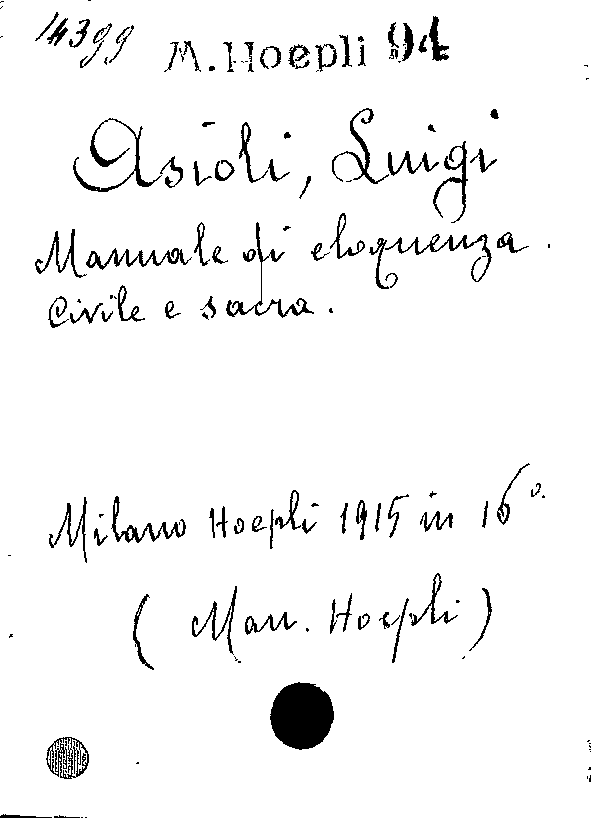 14399 M. Hoepli 94
Asioli, Luigi
Manuale di eloquenza.
Civile e sacra.
Milano Hoepli 1915 in 16º.
(Man. Hoepli)